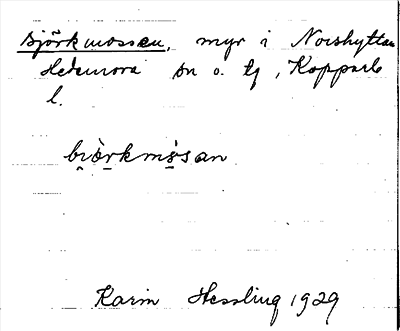 Björkmossen, myr i Norshyttan
Hedemora sn o. tg, Kopparb
l.
biörkmosan
Karin Hessling 1929